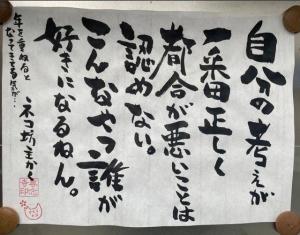 自分の考えが
一番正しく
都合が悪いことは
認めない。
こんなやつ誰が
好きになるねん。
年を重ねると
なってきてる気が…
ネコ坊主かく